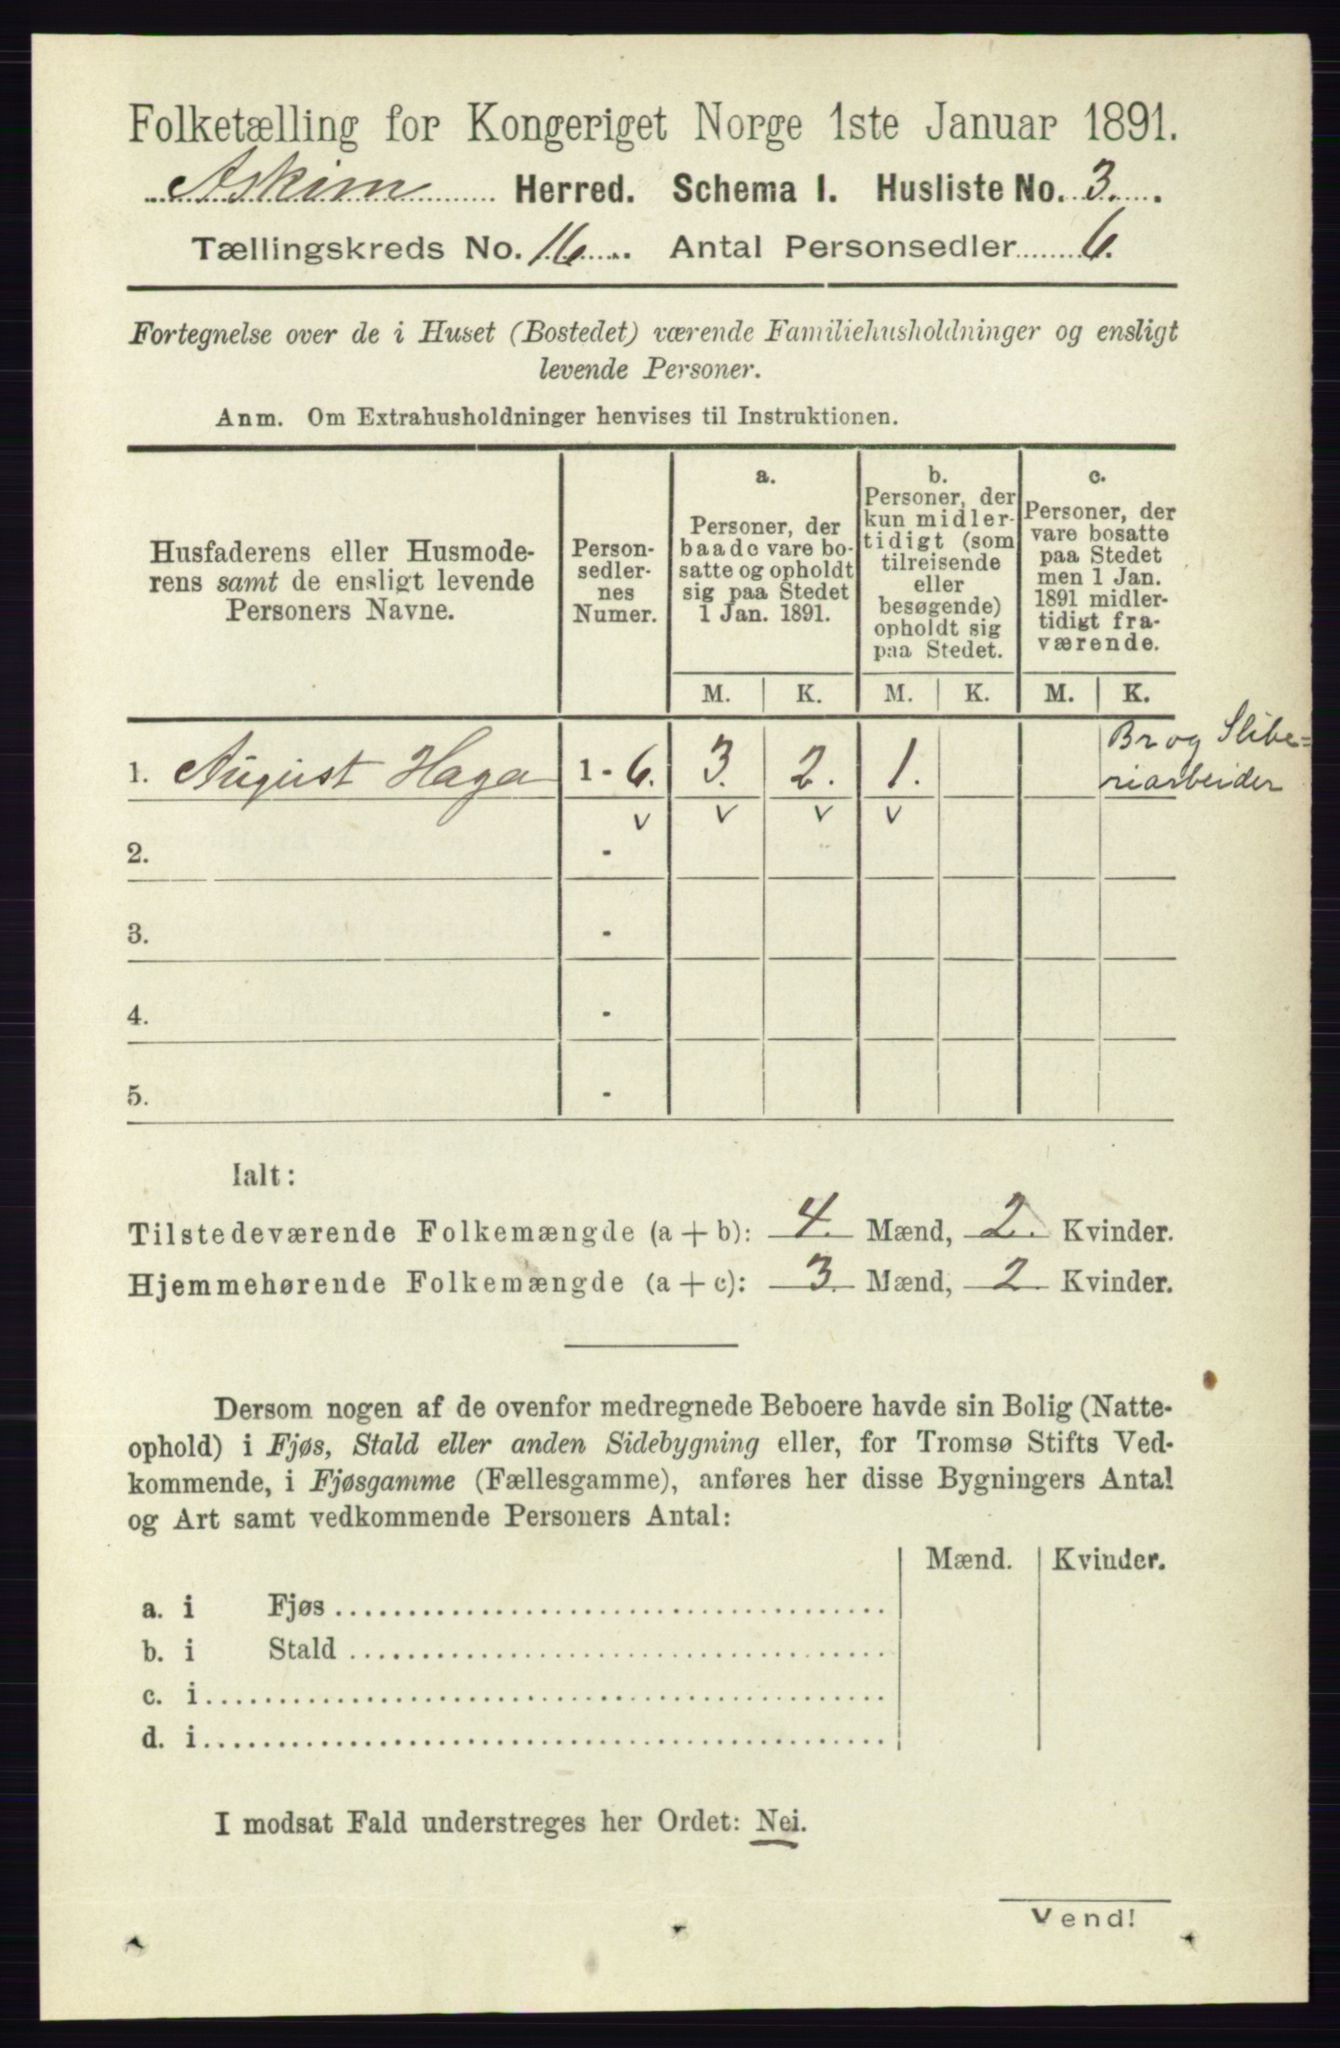 Folketælling for Kongeriget Norge 1ste Januar 1891.
Askim Herred. Schema I. Husliste No. 3.
Tællingskreds No. 16. Antal Personsedler 6.
Fortegnelse over de i Huset (Bostedet) værende Familiehusholdninger og ensligt
levende Personer.
Anm. Om Extrahusholdninger henvises til Instruktionen.
Husfaderens eller Husmode-
rens samt de ensligt levende
Personers Navne.
Person-
sedler-
nes
Numer.
a.
Personer, der
baade vare bo-
satte og opholdt
sig paa Stedet
1 Jan. 1891.
b.
Personer, der
kun midler-
tidigt (som
tilreisende
eller
besøgende)
opholdt sig
paa Stedet.
c.
Personer, der
vare bosatte
paa Stedet
men 1 Jan.
1891 midler-
tidigt fra-
værende.
M. K. M. K. M. K.
1. August Haga 1 - 6. 3. 2. 1. Br og Slibe-
riarbeider
v v v v
2. -
3. -
4. -
5. -
Ialt:
Tilstedeværende Folkemængde (a + b): 4. Mænd, 2. Kvinder.
Hjemmehørende Folkemængde (a + c): 3. Mænd, 2 Kvinder.
Dersom nogen af de ovenfor medregnede Beboere havde sin Bolig (Natte-
ophold) i Fjøs, Stald eller anden Sidebygning eller, for Tromsø Stifts Ved-
kommende, i Fjøsgamme (Fællesgamme), anføres her disse Bygningers Antal
og Art samt vedkommende Personers Antal:
Mænd. Kvinder.
a. i Fjøs
b. i Stald
c. i
d. i
I modsat Fald understreges her Ordet: Nei.
Vend!